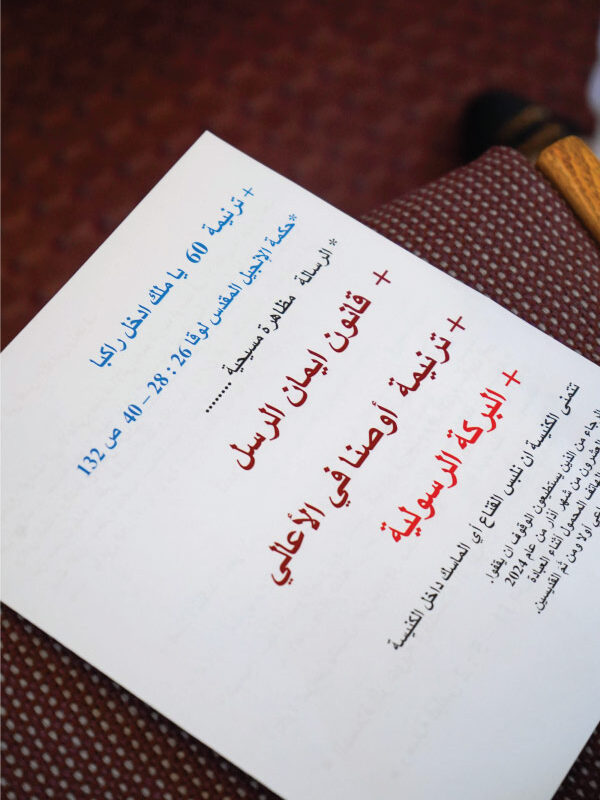 + ترنيمة 60 يا ملك ادخل راكبا
*حكمة الإنجيل المقدس لوقا 26 : 28 – 40 ص 132
* الرسالة مظاهرة مسيحية ........
+ قانون ايمان الرسل
+ ترنيمة أوصنا في الأعالي
+ البركة الرسولية
تتمنى الكنيسة ان نلبس القناع أي الماسك داخل الكنيسة
الرجاء من الذين يستطيعون الوقوف ان يقفوا.
العشرون من شهر آذار من عام 2024
الهاتف المحمول أثناء العبادة
أولا ومن ثم القديسين.